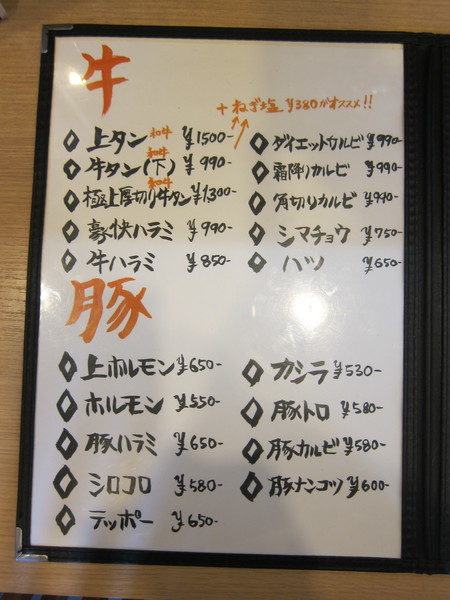 牛
+ねぎ塩 ¥380がオススメ!!
◇上タン 和牛 ¥1500-
◇牛タン(下) 和牛 ¥990-
◇極上厚切り牛タン 和牛 ¥1300-
◇豪快ハラミ ¥990-
◇牛ハラミ ¥850-
◇ダイエットカルビ ¥990-
◇霜降りカルビ ¥990-
◇角切りカルビ ¥990-
◇シマチョウ ¥750-
◇ハツ ¥650-
豚
◇上ホルモン ¥650-
◇ホルモン ¥550-
◇豚ハラミ ¥650-
◇シロコロ ¥580-
◇テッポー ¥650-
◇カシラ ¥530-
◇豚トロ ¥580-
◇豚カルビ ¥580-
◇豚ナンコツ ¥600-